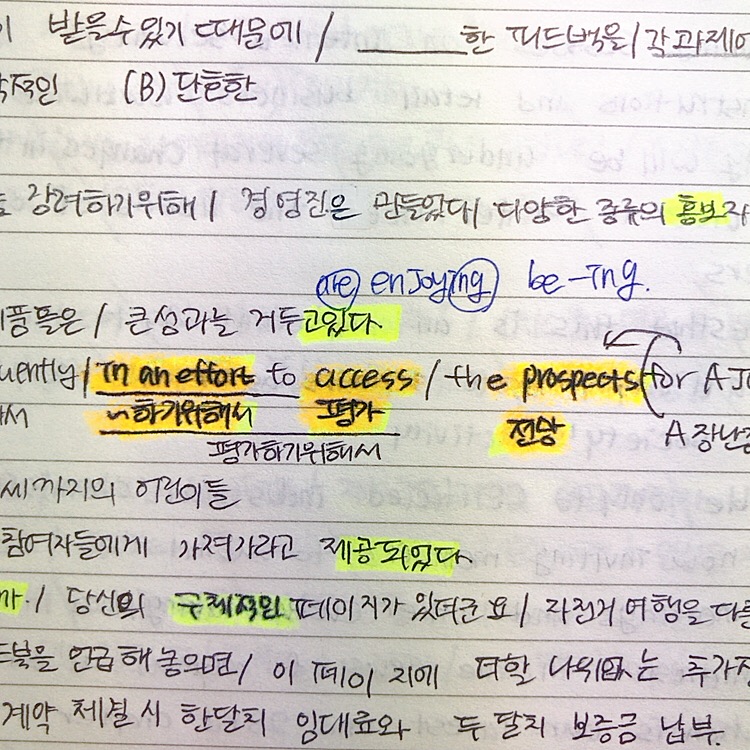 받을수있기 때문에 / ______한 피드백을 / 각과제에
(B) 단호한
강려하기위해 / 경영진은 만들었다 / 다양한 종류의 홍보자
are enjoying be -ing.
큰성과를 거두고있다.
in an effort to access / the prospects for A
~하기위해서 평가 전망 A 장난감
평가하기위해서
세까지의 어린이들
참여자들에게 가져가라고 제공되었다.
당신의 구체적인 페이지가 있더군요 / 자전거 여행을 다룬
언급해놓으면 / 이 페이지에 더할 나위없는 추가
계약 체결시 한달치 임대료와 두달치 보증금 납부.